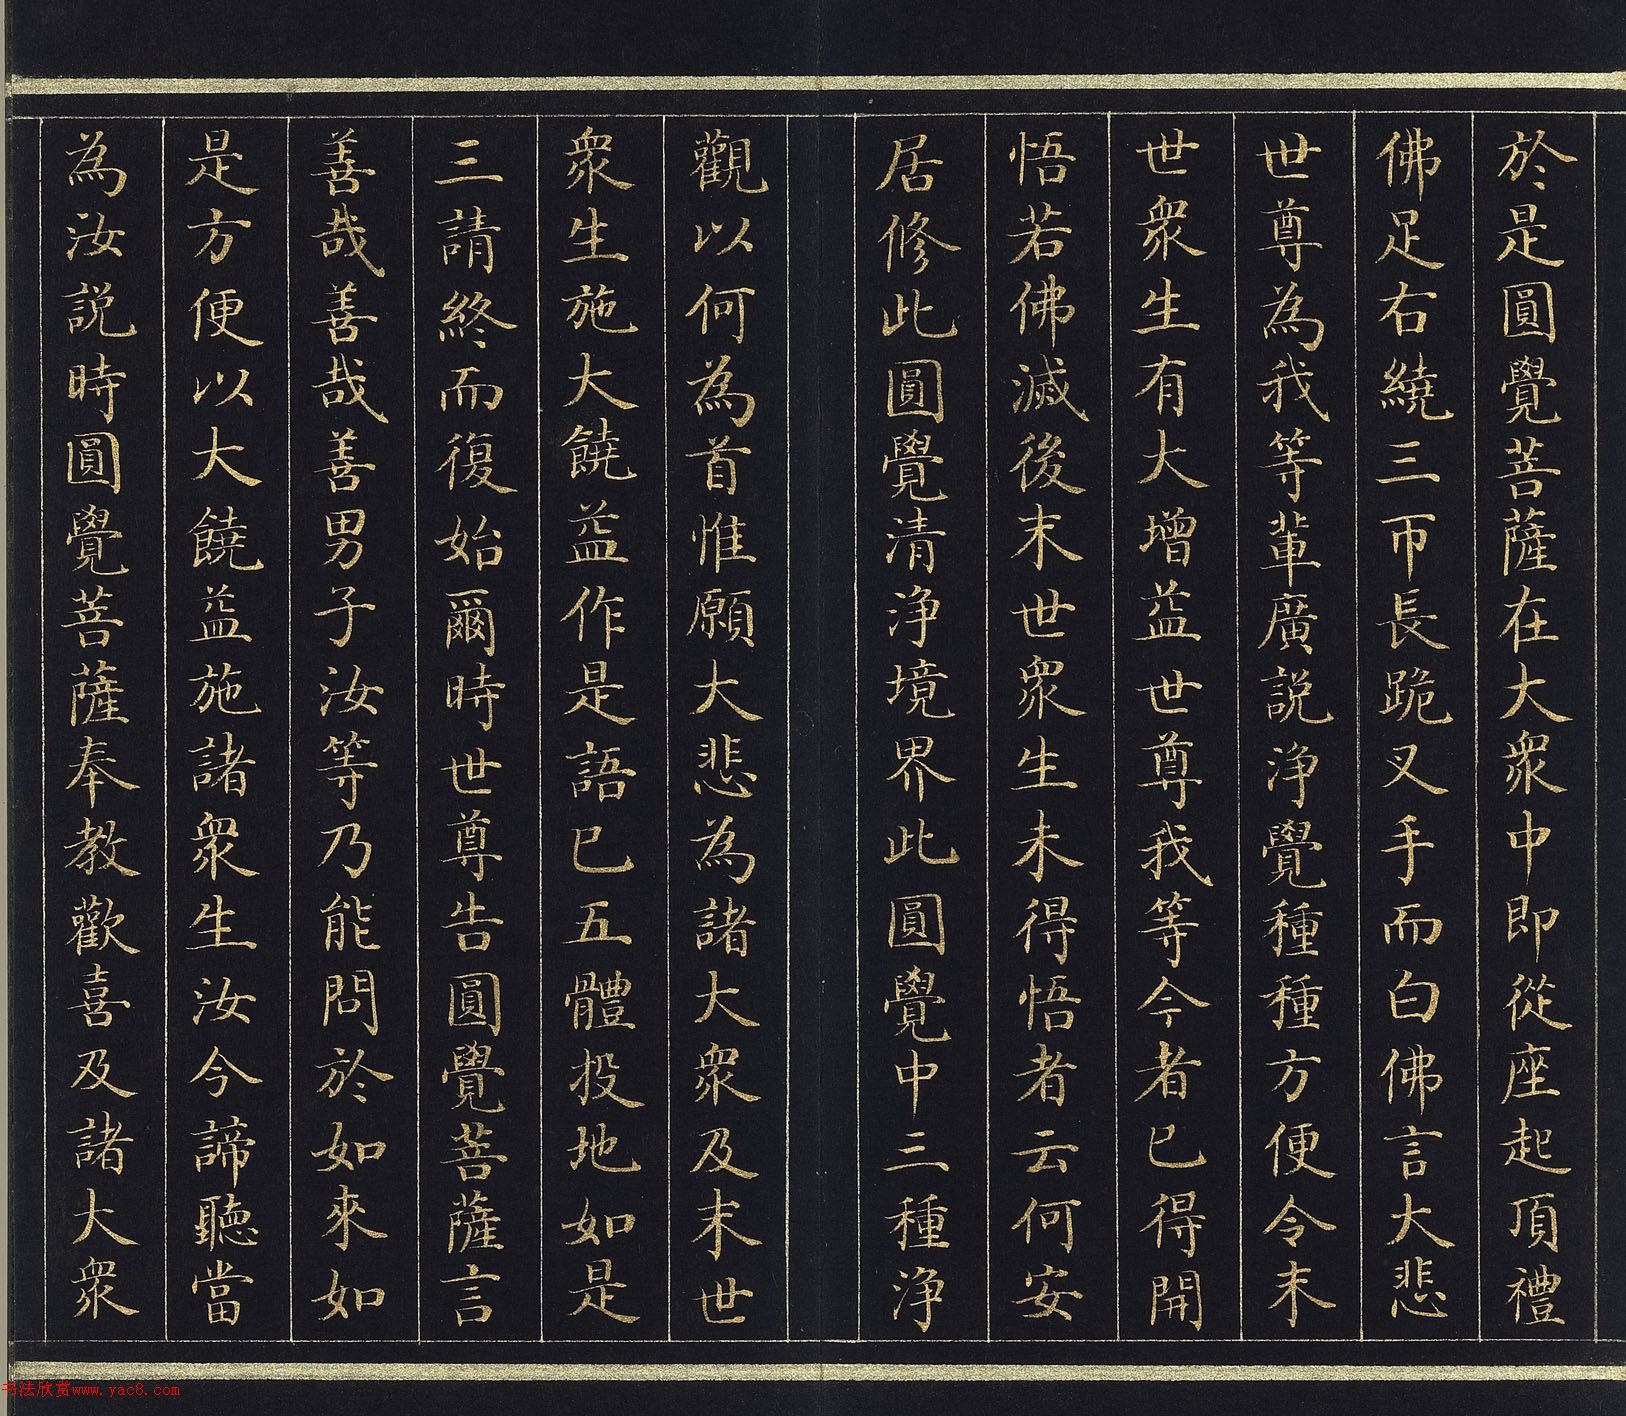 於是圓覺菩薩在大衆中即從座起頂禮
佛足右繞三帀長跪叉手而白佛言大悲
世尊為我等輩廣説淨覺種種方便令末
世衆生有大增益世尊我等今者已得開
悟若佛滅後末世衆生未得悟者云何安
居修此圓覺清淨境界此圓覺中三種淨
觀以何為首惟願大悲為諸大衆及末世
衆生施大饒益作是語已五體投地如是
三請終而復始爾時世尊告圓覺菩薩言
善哉善哉善男子汝等乃能問於如來如
是方便以大饒益施諸衆生汝今諦聽當
為汝説時圓覺菩薩奉教歡喜及諸大衆
书法欣赏www.yac8.com